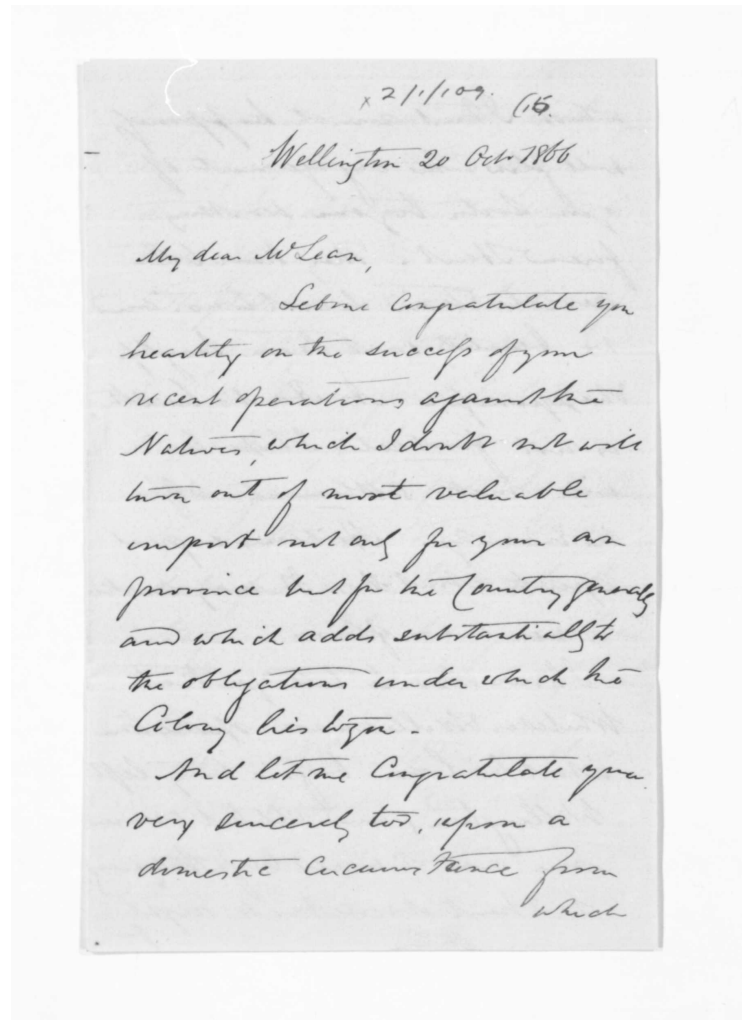 x 2/1/109.
(15.
Wellington 20 Oct. 1866
My dear McLean,
Let me Congratulate you
heartily on the success of your
recent operations against the
Natives, which I doubt not will
turn out of most valuable
import not only for your own
province but for the Country generally
and which adds substantially to
the obligations under which the
Colony lies to you.
And let me Congratulate you
very sincerely too, upon a
domestic Circumstance from
which